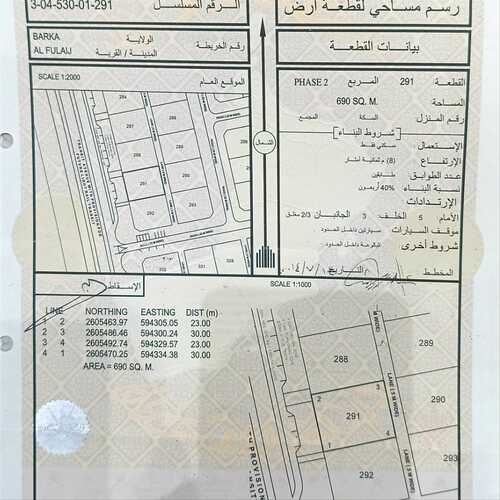 رسم مساحي لقطعة أرض
الرقم المسلسل
3-04-530-01-291
بيانات القطعة
الولاية
BARKA
رقم الخريطة
المدينة / القرية
AL FULAIJ
القطعة 291 المربع PHASE 2
المساحة 690 SQ. M.
رقم المنزل السكة المجمع
شروط البناء
الإستعمال سكني فقط
الإرتفاع (8) م ثمانية أمتار
عدد الطوابق طابقين
نسبة البناء 40% أربعون
الإرتدادات
الأمام 5 الخلف 3 الجانبان 2/3 مغلق
موقف السيارات سيارتين داخل الحدود
شروط أخرى البالوعة داخل الحدود
المخطط
التاريخ
SCALE 1:2000
الموقع العام
الشمال
294
293
292
291
292
331
330
329
328
SCALE 1:1000
الإسقاط
LINE NORTHING EASTING DIST (m)
1 2 2605463.97 594305.05 23.00
2 3 2605486.46 594300.24 30.00
3 4 2605492.74 594329.57 23.00
4 1 2605470.25 594334.38 30.00
AREA = 690 SQ. M.
288
289
290
291
292
2
3
1
4
LANE (5 M WIDE)
LANE (5 M WIDE)